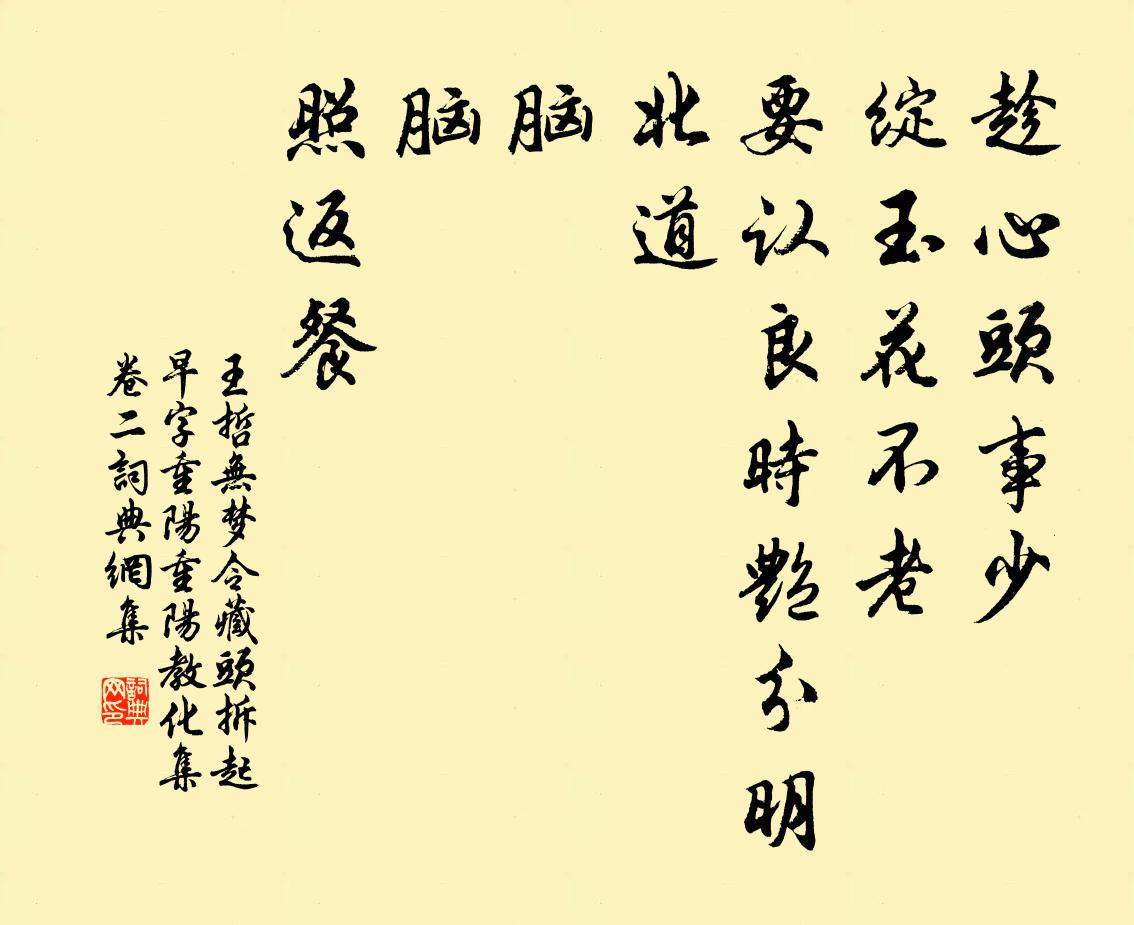 趁心頭事少
綻玉花不老
要认良時艷分明
北道
脑
脑
照返餐
王哲無梦令藏頭拆起
早字重陽重陽教化集
卷二詞典網集
詞典
网印